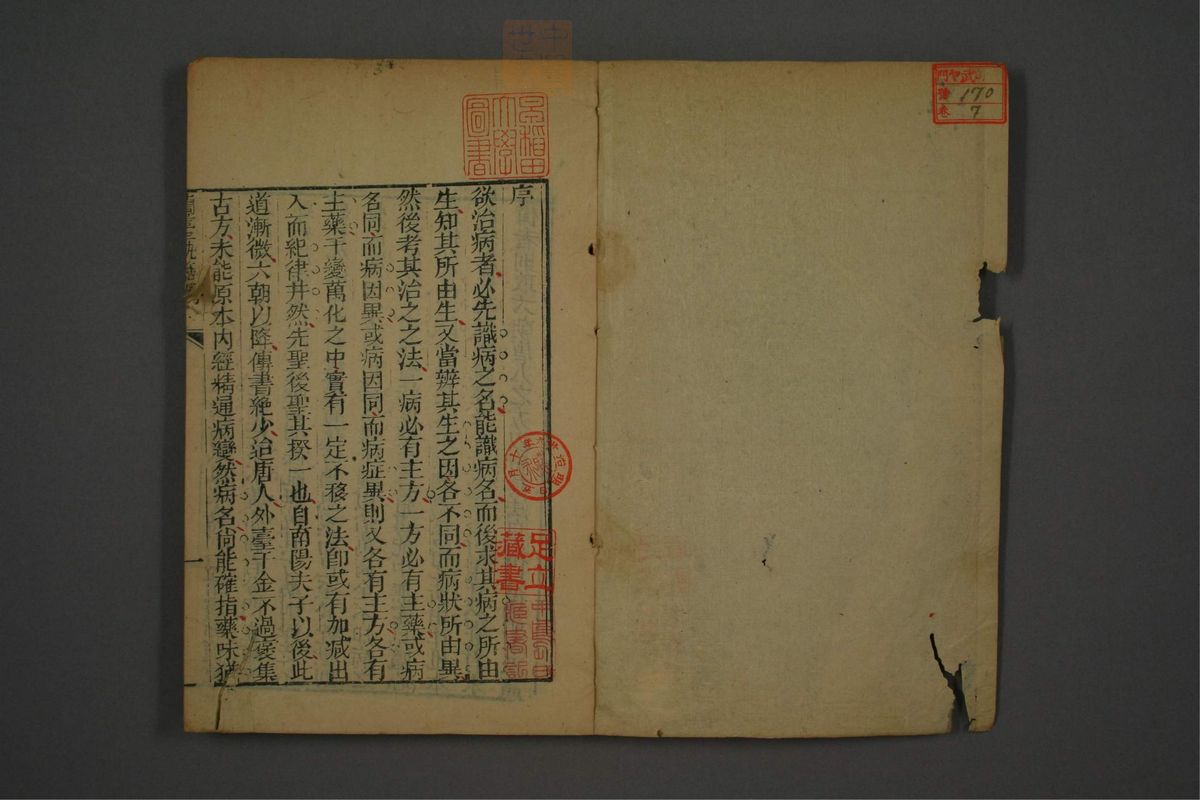 序
欲治病者必先識病之名能識病名而後求其病之所由
生知其所由生又當辨其生之因各不同而病狀所由異
然後考其治之之法一病必有主方一方必有主藥或病
名同而病因異或病因同而病症異則又各有主方各有
主藥千變萬化之中實有一定不移之法卽或有加減出
入而紀律井然先聖後聖其揆一也自南陽夫子以後此
道漸微六朝以降傳書絶少治唐人外臺千金不過裒集
古方未能原本內經精通病變然病名尚能確指藥味猶
一
早稻田
大學
圖書
足立
藏書
170
卷 7